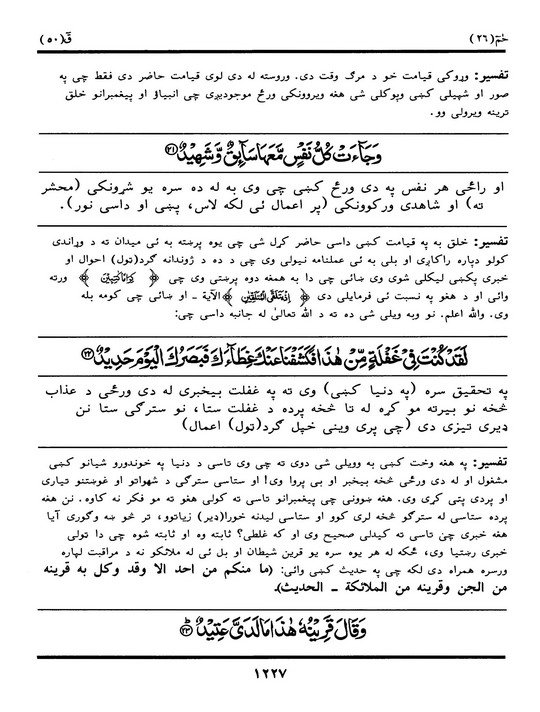 حٰمٓ(٢٦) قٓ(٥٠)
تفسیر: وړوکی قیامت خو د مرګ وقت دی. وروسته له دی لوی قیامت حاضر دی فقط چی په
صور او شپیلی کښی وپوکلی شی هغه ویروونکی ورځ موجودیږی چی انبیاؤ او پیغمبرانو خلق
ترینه ویرولی وو.
وَجَآءَتْ كُلُّ نَفْسٍ مَّعَهَا سَآئِقٌ وَّشَهِيْدٌ ﴿٢١﴾
او راځی هر نفس په دی ورځ کښی چی وی به له ده سره یو شړونکی (محشر
ته) او شاهدی ورکوونکی (پر اعمال ئی لکه لاس، پښی او داسی نور).
تفسیر: خلق به په قیامت کښی داسی حاضر کړل شی چی یوه پرښته به ئی میدان ته د وړاندی
کولو دپاره راکاږی او بلی به ئی عملنامه نیولی وی چی د ده د ژوندانه ګرد(ټول) احوال او
خبری پکښی لیکلی شوی وی ښائی چی دا به همغه دوه پرښتی وی چی ﴿ كِرَامًا كَاتِبِيْنَ ﴾ ورته
وائی او د هغو په نسبت ئی فرمایلی دی ﴿ اِذْ يَتَلَقَّى الْمُتَلَقِّيٰنِ ﴾ الآیة ـ او ښائی چی کومه بله
وی. والله اعلم. نو وبه ویلی شی ده ته د الله تعالیٰ له جانبه داسی چی:
لَقَدْ كُنْتَ فِيْ غَفْلَةٍ مِّنْ هٰذَا فَكَشَفْنَا عَنْكَ غِطَآءَكَ فَبَصَرُكَ الْيَوْمَ حَدِيْدٌ ﴿٢٢﴾
په تحقیق سره (په دنیا کښی) وی ته په غفلت بیخبری له دی ورځی د عذاب
څخه نو بیرته مو کړه له تا څخه پرده د غفلت ستا، نو سترګی ستا نن
ډیری تیزی دی (چی پری وینی خپل ګرد(ټول) اعمال)
تفسیر: په هغه وخت کښی به وویلی شی دوی ته چی وی تاسی د دنیا په خوندورو شیانو کښی
مشغول او له دی ورځی څخه بیخبر او بی پروا وی! او ستاسی سترګی د شهواتو او غوښتنو تیاری
او پردی پټی کړی وی. هغه ښوونی چی پیغمبرانو تاسی ته کولی هغو ته مو فکر نه کاوه. نن هغه
پرده ستاسی له سترګو څخه لری کوو او ستاسی لیدنه خورا(ډیر) زیاتوو، تر څو ښه وګوری آیا
هغه خبری چئ تاسی ته کیدلی صحیح وی او که غلطی؟ ثابته وه او ثابته شوه چی دا ټولی
خبری رښتیا وی، ځکه له هر یوه سره یو قرین شیطان او بل ئی له ملائکو نه د مراقبت لپاره
ورسره همراه دی لکه چی په حدیث کښی وائی: (ما منکم من احد الا وقد وکل به قرینه
من الجن وقرینه من الملائکة ـ الحدیث).
وَقَالَ قَرِيْنُهٗ هٰذَا مَا لَدَيَّ عَتِيْدٌ ﴿٢٣﴾
١٢٢٧